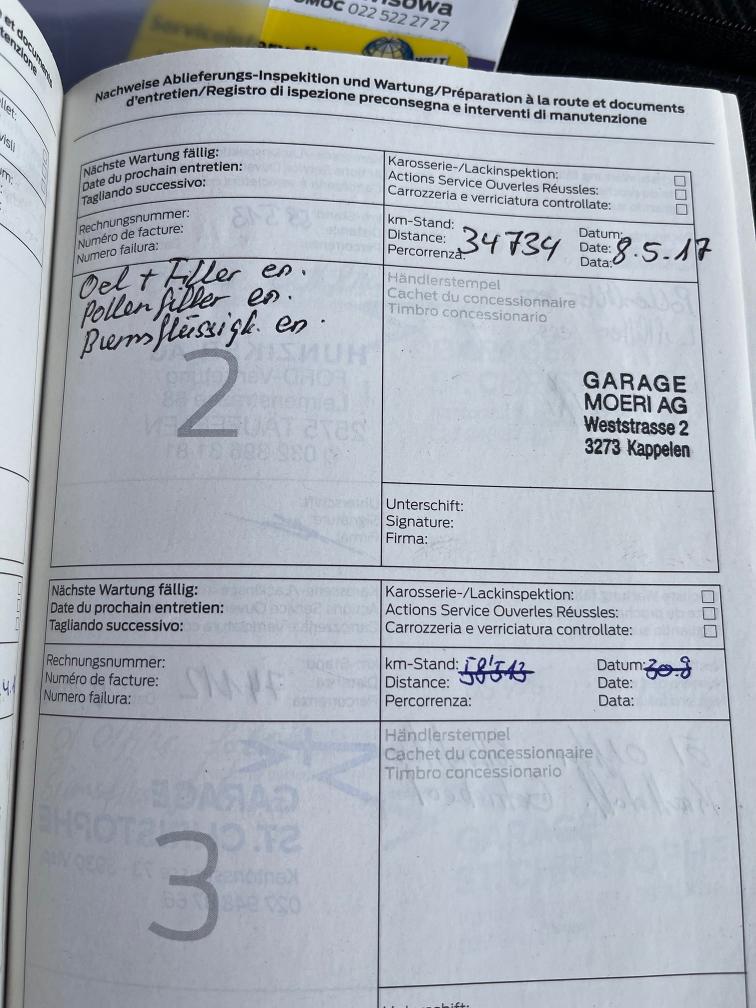 isowa
022 522 27 27
Nachweise Ablieferungs-Inspekition und Wartung/Préparation à la route et documents
d'entretien/Registro di ispezione preconsegna e interventi di manutenzione
Nächste Wartung fällig:
Date du prochain entretien:
Tagliando successivo:
Karosserie-/Lackinspektion:
Actions Service Ouverles Réussles:
Carrozzeria e verriciatura controllate:
Rechnungsnummer:
Numéro de facture:
Numero failura:
km-Stand:
Distance: 34734
Percorrenza:
Datum:
Date: 8.5.17
Data:
Oel + Filter er.
Pollenfilter er.
Bremsflüssigk. er.
2
Händlerstempel
Cachet du concessionnaire
Timbro concessionario
GARAGE
MOERI AG
Weststrasse 2
3273 Kappelen
Unterschift:
Signature:
Firma:
Nächste Wartung fällig:
Date du prochain entretien:
Tagliando successivo:
Karosserie-/Lackinspektion:
Actions Service Ouverles Réussles:
Carrozzeria e verriciatura controllate:
Rechnungsnummer:
Numéro de facture:
Numero failura:
km-Stand: 58'513
Distance:
Percorrenza:
Datum: 30.8
Date:
Data:
3
Händlerstempel
Cachet du concessionnaire
Timbro concessionario